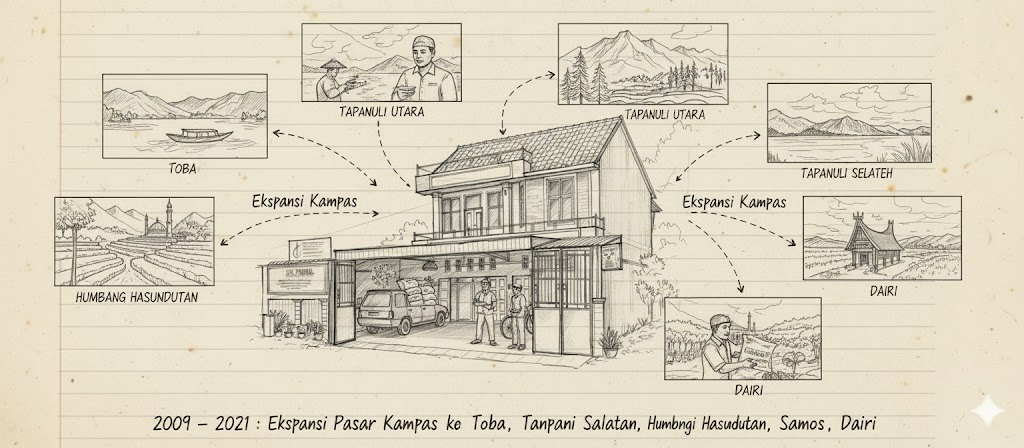 TAPANULI UTARA
TAPANULI UTARA
TOBA
TAPANULI SELATEH
Ekspansi Kampas
Ekspansi Kampas
HUMBANG HASUNDUTAN
DAIRI
DAIRI
2009 – 2021 : Ekspansi Pasar Kampas ke Toba, Tanpani Salatan, Humbngi Hasudutan, Samos, Dairi